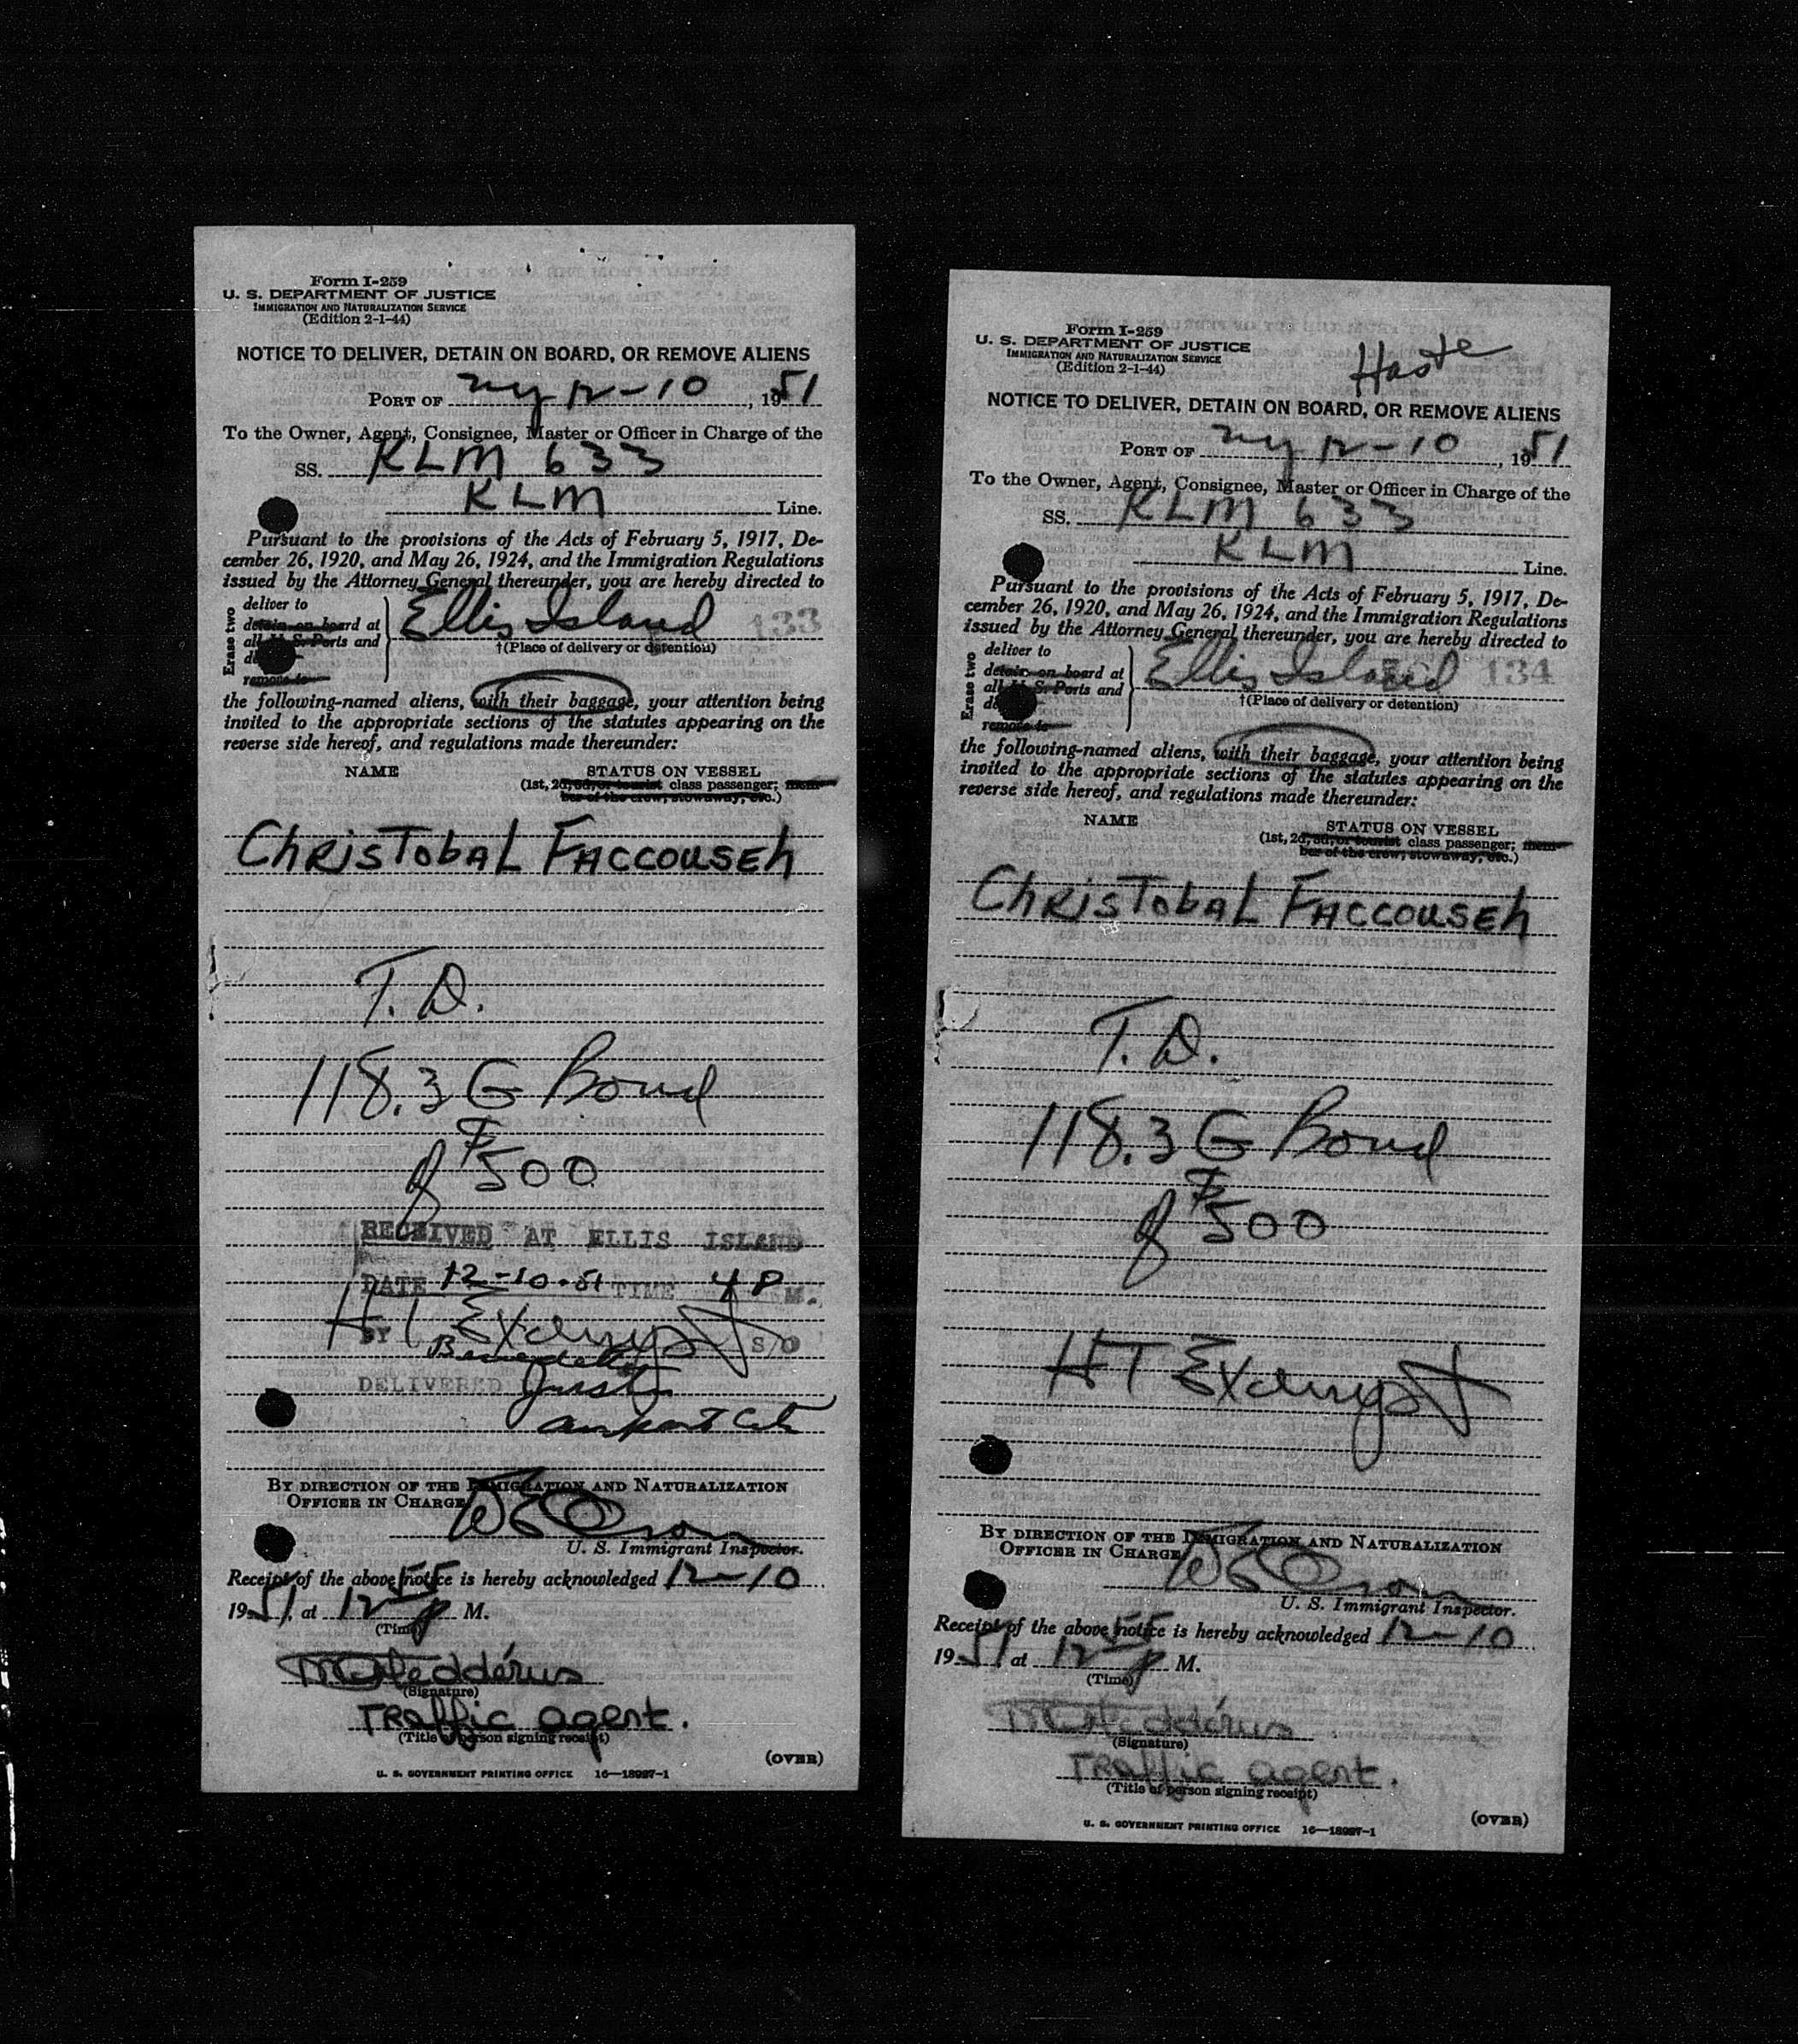 Form I-259
U. S. DEPARTMENT OF JUSTICE
IMMIGRATION AND NATURALIZATION SERVICE
(Edition 2-1-44)
NOTICE TO DELIVER, DETAIN ON BOARD, OR REMOVE ALIENS
PORT OF ny 12-10, 1951
To the Owner, Agent, Consignee, Master or Officer in Charge of the
SS. KLM 633
KLM Line.
Pursuant to the provisions of the Acts of February 5, 1917, De-
cember 26, 1920, and May 26, 1924, and the Immigration Regulations
issued by the Attorney General thereunder, you are hereby directed to
Erase two
deliver to
detain on board at
all U. S. Ports and
remove to
Ellis Island 133
†(Place of delivery or detention)
the following-named aliens, with their baggage, your attention being
invited to the appropriate sections of the statutes appearing on the
reverse side hereof, and regulations made thereunder:
NAME STATUS ON VESSEL
(1st, 2d, 3d, or tourist class passenger; mem-
ber of the crew, stowaway, etc.)
ChRisTobaL FACCOUSEh
T. D.
118.3 G Bond
of $500
RECEIVED AT ELLIS ISLAND
DATE 12-10-51 TIME 4 P M.
BY S/O
DELIVERED
BY DIRECTION OF THE IMMIGRATION AND NATURALIZATION
OFFICER IN CHARGE
U. S. Immigrant Inspector.
Receipt of the above notice is hereby acknowledged 12-10
1951, at 12 55 p M.
(Time)
(Signature)
TRaffic agent.
(Title of person signing receipt)
(OVER)
U. S. GOVERNMENT PRINTING OFFICE 16—18927-1
Form I-259
U. S. DEPARTMENT OF JUSTICE
IMMIGRATION AND NATURALIZATION SERVICE
(Edition 2-1-44)
Haste
NOTICE TO DELIVER, DETAIN ON BOARD, OR REMOVE ALIENS
PORT OF ny 12-10, 1951
To the Owner, Agent, Consignee, Master or Officer in Charge of the
SS. KLM 633
KLM Line.
Pursuant to the provisions of the Acts of February 5, 1917, De-
cember 26, 1920, and May 26, 1924, and the Immigration Regulations
issued by the Attorney General thereunder, you are hereby directed to
Erase two
deliver to
detain on board at
all U. S. Ports and
remove to
Ellis Island 134
†(Place of delivery or detention)
the following-named aliens, with their baggage, your attention being
invited to the appropriate sections of the statutes appearing on the
reverse side hereof, and regulations made thereunder:
NAME STATUS ON VESSEL
(1st, 2d, 3d, or tourist class passenger; mem-
ber of the crew, stowaway, etc.)
ChRisTobaL FACCOUSEh
T. D.
118.3 G Bond
of $500
BY DIRECTION OF THE IMMIGRATION AND NATURALIZATION
OFFICER IN CHARGE
U. S. Immigrant Inspector.
Receipt of the above notice is hereby acknowledged 12-10
1951 at 12 55 p M.
(Time)
(Signature)
TRaffic agent.
(Title of person signing receipt)
(OVER)
U. S. GOVERNMENT PRINTING OFFICE 16—18927-1